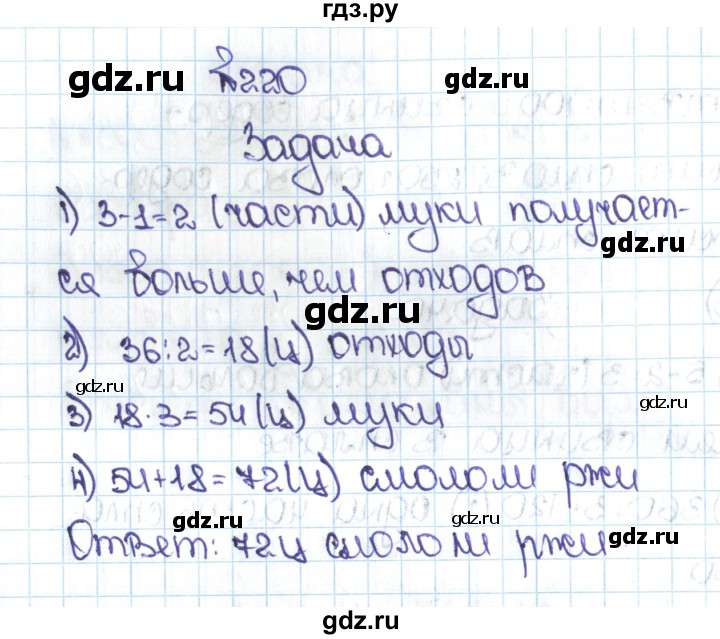 гдз.ру
gdz.ru №220 gdz.ru
Задача
1) 3-1=2 (части) муки получает-
gdz.ru
ся больше, чем отходов
gdz.ru
2) 36:2=18(ц) отходы
gdz.ru gdz.ru
3) 18·3=54(ц) муки
4) 54+18=72(ц) смололи ржи
gdz.ru gdz.ru
Ответ: 72ц смололи ржи
gdz.ru
gdz.ru